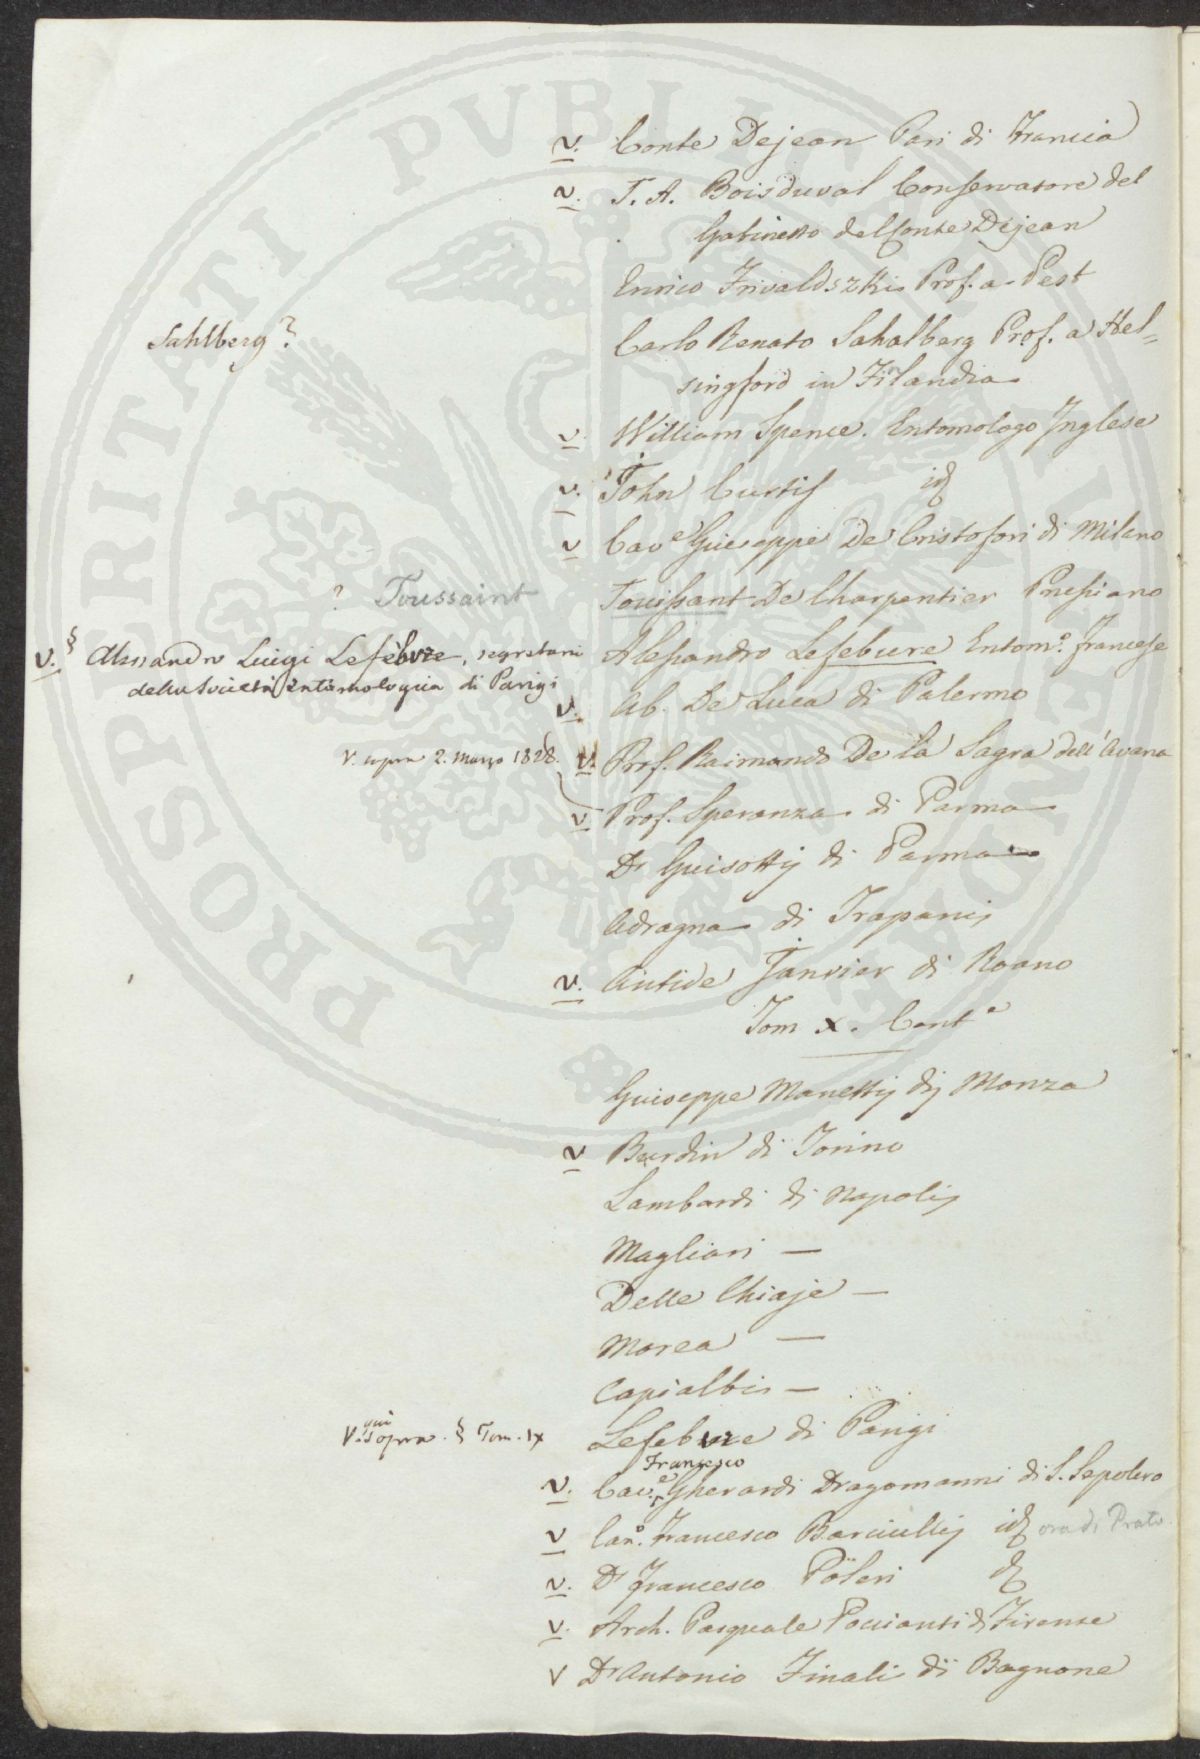 v. Conte Dejean Pari di Francia
v. T. A. Boisduval Conservatore del
Gabinetto del Conte Dejean
Enrico Frivaldszki Prof. a Pest
Sahlberg? Carlo Renato Sahalberg Prof. a Hel=
singford in Filandia
v. William Spence. Entomologo Inglese
v. John Curtis id
v Cav.e Giuseppe De Cristofori di Milano
? Toussaint Touissant De Charpentier Prussiano
v. § Alessandro Luigi Lefebvre, segretario Alessandro Lefebure Entom.o francese
della Società Entomologica di Parigi
v. Ab. De Luca di Palermo
V. sopra 2. Marzo 1828. v. Prof. Raimondo De la Sagra dell'Avana
v Prof. Speranza di Parma
Dr Guisotti di Parma
Adragna di Trapani
v. Antide Janvier di Roano
Tom X. Cont.e
Guiseppe Manetti di Monza
v Burdin di Torino
Lambardi di Napoli
Magliari —
Delle Chiaje —
Morea —
Capialbi —
V. qui sopra. § Tom. IX Lefebvre di Parigi
Francesco
v. Cav.e Gherardi Dragomanni di S. Sepolcro
v Can.o Francesco Barciulli id ora di Prato
v. Dr francesco Pöleri id
v. Arch. Pasquale Poccianti di Firenze
v Dr Antonio Finali di Bagnone
PROSPERITATI PVBLICAE